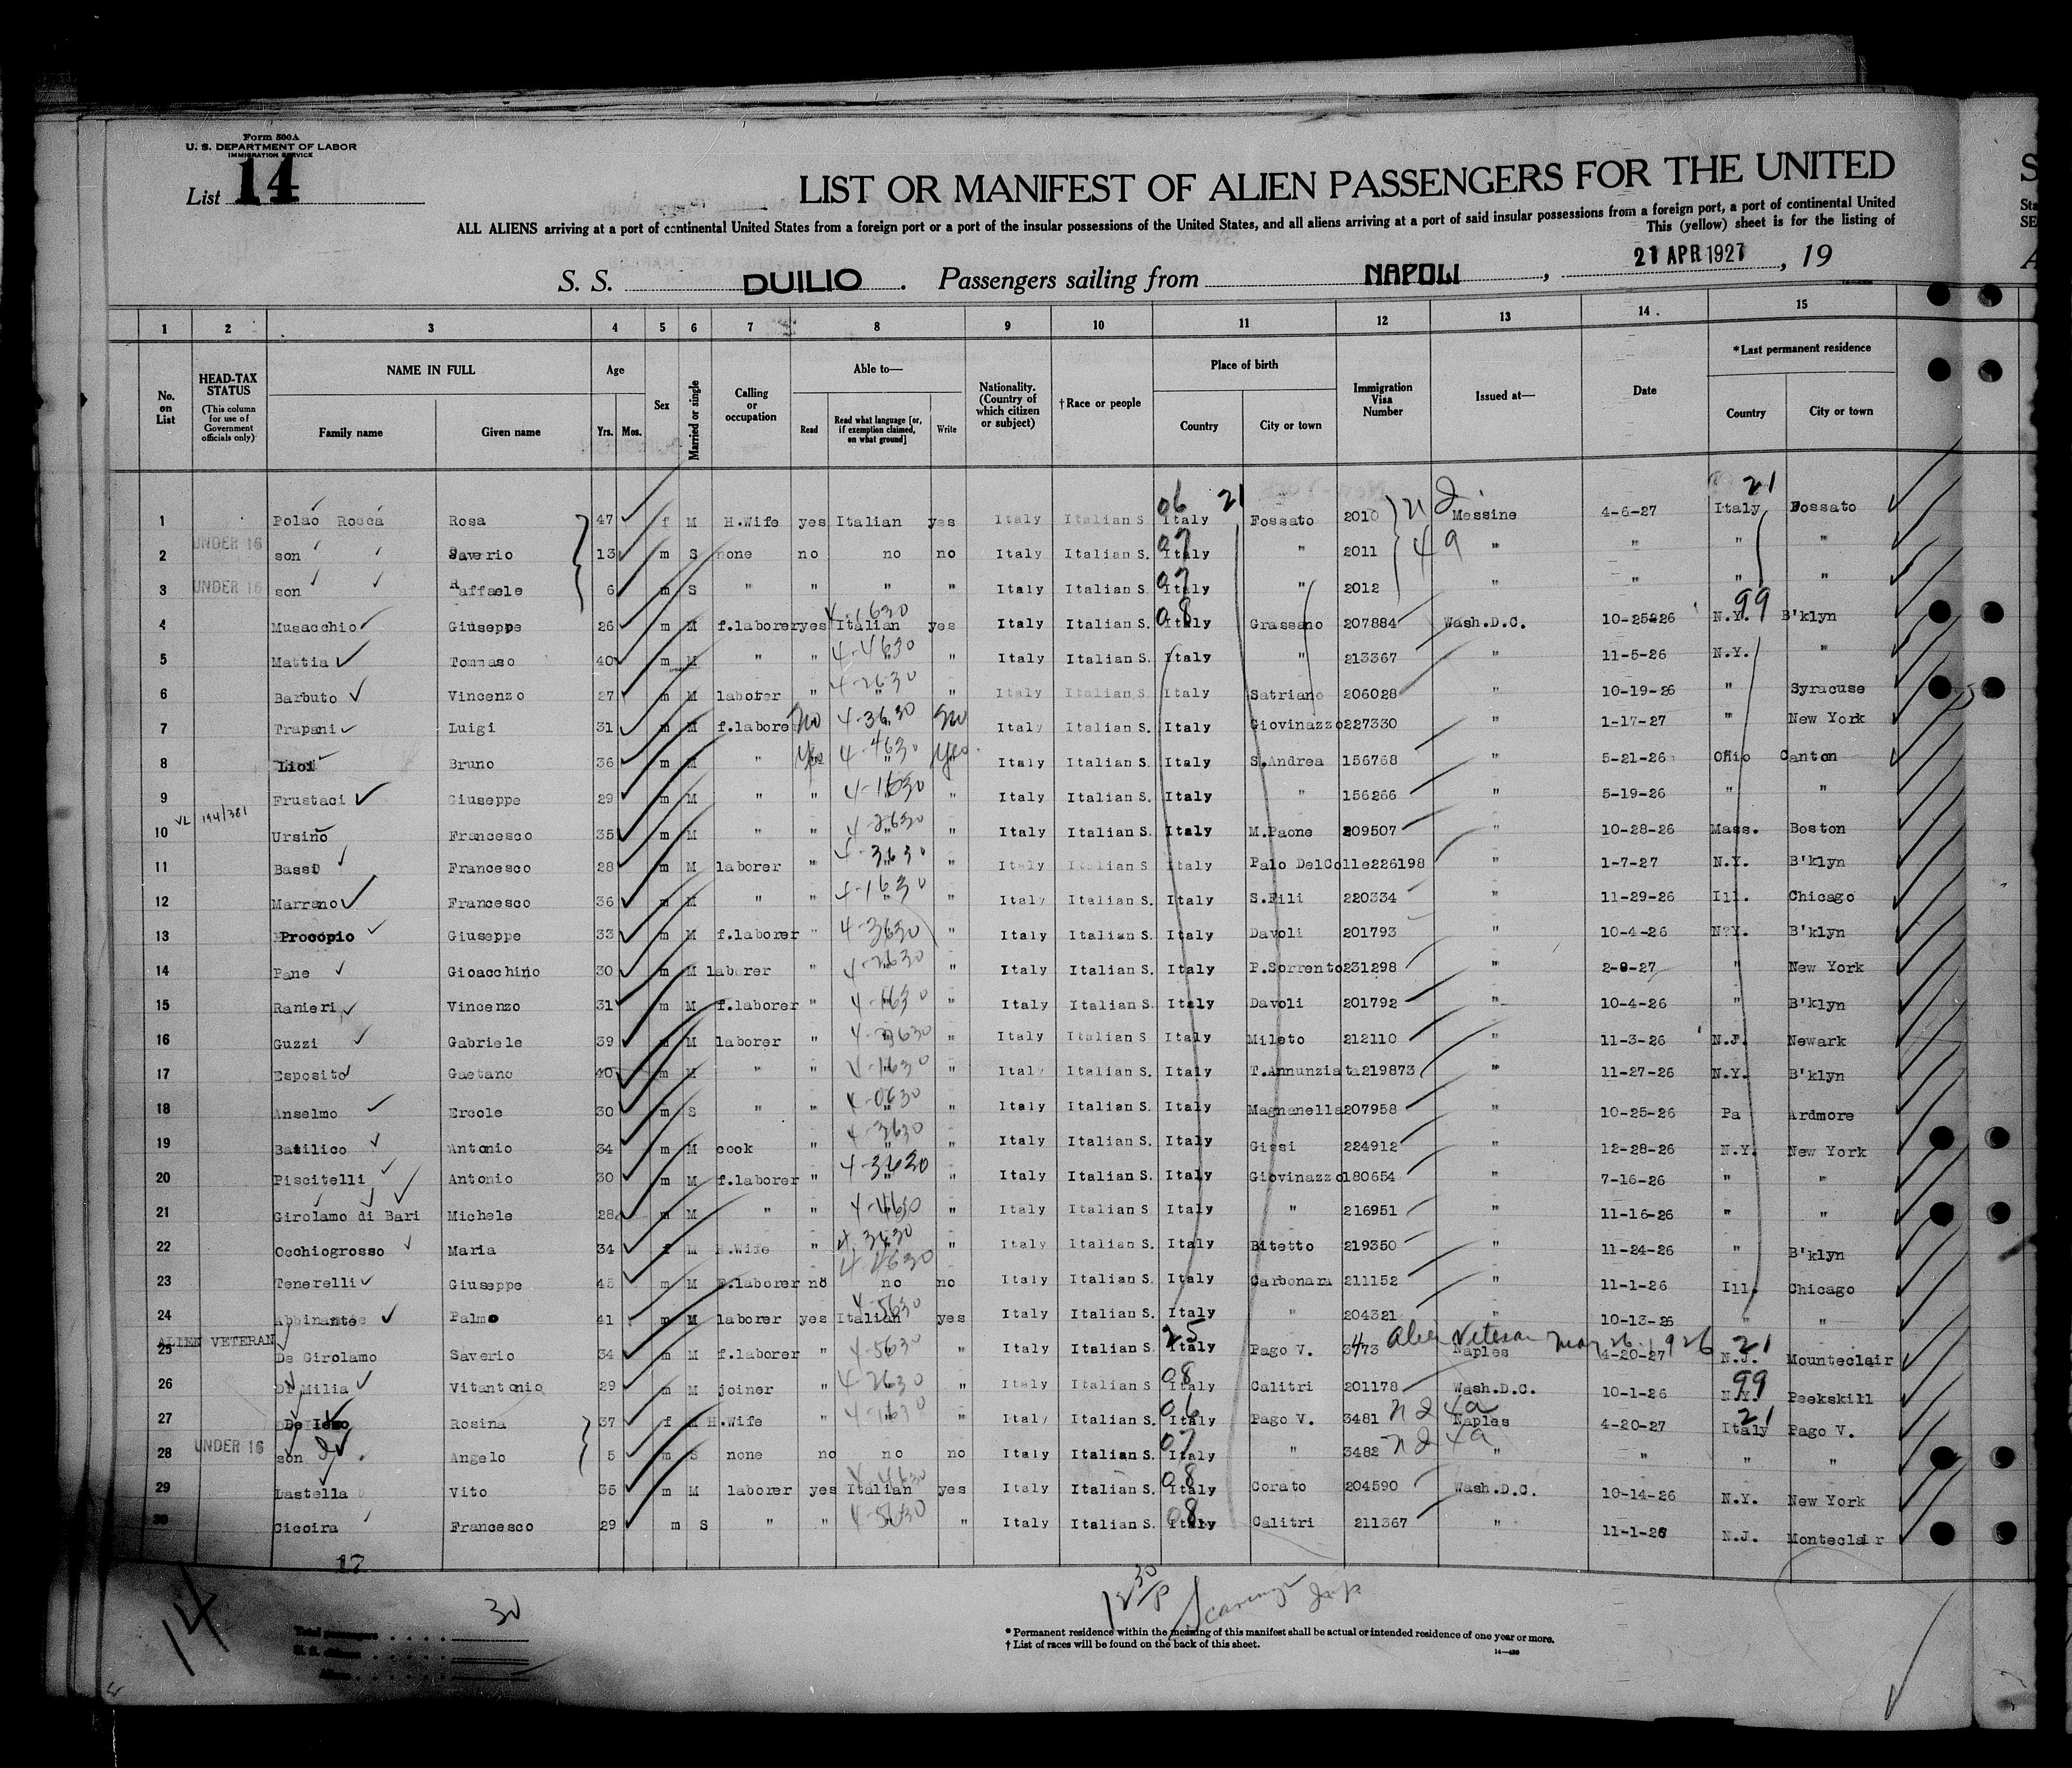 Form 500A
U. S. DEPARTMENT OF LABOR
IMMIGRATION SERVICE
List 14
LIST OR MANIFEST OF ALIEN PASSENGERS FOR THE UNITED
ALL ALIENS arriving at a port of continental United States from a foreign port or a port of the insular possessions of the United States, and all aliens arriving at a port of said insular possessions from a foreign port, a port of continental United
This (yellow) sheet is for the listing of
S. S. DUILIO . Passengers sailing from NAPOLI , 21 APR 1927 , 19
1 2 3 4 5 6 7 8 9 10 11 12 13 14 15
No. on List
HEAD-TAX STATUS (This column for use of Government officials only)
NAME IN FULL
Family name Given name
Age
Yrs. Mos.
Sex
Married or single
Calling or occupation
Able to—
Read Read what language [or, if exemption claimed, on what ground] Write
Nationality. (Country of which citizen or subject)
†Race or people
Place of birth
Country City or town
Immigration Visa Number
Issued at—
Date
*Last permanent residence
Country City or town
06 21 21
1 Polao Rocca Rosa 47 f M H.Wife yes Italian yes Italy Italian S Italy Fossato 2010 Messine 4-6-27 Italy Fossato
2 UNDER 16 son Saverio 13 m S none no no no Italy Italian S. Italy " 2011 " " " "
3 UNDER 16 son Raffaele 6 m S " " " " Italy Italian S. Italy " 2012 " " " "
4 Musacchio Giuseppe 26 m M f.laborer yes Italian yes Italy Italian S. 08 Italy Grassano 207884 Wash.D.C. 10-25-26 N.Y. 99 B'klyn
5 Mattia Tommaso 40 m M " " 4-4630 " Italy Italian S. Italy " 213367 " 11-5-26 N.Y. "
6 Barbuto Vincenzo 27 m M laborer " 4-2630 " Italy Italian S. Italy Satriano 206028 " 10-19-26 " Syracuse
7 Trapani Luigi 31 m M f.labore No 4-3630 No Italy Italian S. Italy Giovinazzo 227330 " 1-17-27 " New York
8 Lioi Bruno 36 m M " Yes 4-4630 Yes Italy Italian S. Italy S.Andrea 156768 " 5-21-26 Ohio Canton
9 Frustaci Giuseppe 29 m M " " 4-1630 " Italy Italian S. Italy " 156266 " 5-19-26 " "
VL 194/381
10 Ursino Francesco 35 m M " " 4-2630 " Italy Italian S. Italy M.Paone 209507 " 10-28-26 Mass. Boston
11 Basso Francesco 28 m M laborer " 4-3630 " Italy Italian S. Italy Palo DelColle 226198 " 1-7-27 N.Y. B'klyn
12 Marrano Francesco 36 m M " " 4-1630 " Italy Italian S. Italy S.Fili 220334 " 11-29-26 Ill. Chicago
13 Procopio Giuseppe 33 m M f.laborer " 4-3630 " Italy Italian S. Italy Davoli 201793 " 10-4-26 N.Y. B'klyn
14 Pane Gioacchino 30 m M laborer " 4-2630 " Italy Italian S. Italy P.Sorrento 231298 " 2-8-27 " New York
15 Ranieri Vincenzo 31 m M f.laborer " " Italy Italian S. Italy Davoli 201792 " 10-4-26 " B'klyn
16 Guzzi Gabriele 39 m M laborer " " Italy Italian S Italy Mileto 212110 " 11-3-26 N.J. Newark
17 Esposito Gaetano 40 m M " " 4-1630 " Italy Italian S. Italy T.Annunziata 219873 " 11-27-26 N.Y. B'klyn
18 Anselmo Ercole 30 m S " " 4-0630 " Italy Italian S. Italy Magnanella 207958 " 10-25-26 Pa Ardmore
19 Basilico Antonio 34 m M cook " 4-3630 " Italy Italian S. Italy Gissi 224912 " 12-28-26 N.Y. New York
20 Piscitelli Antonio 30 m M f.laborer " 4-3630 " Italy Italian S. Italy Giovinazzo 180654 " 7-16-26 " "
21 Girolamo di Bari Michele 28 m M " " 4-4630 " Italy Italian S. Italy " 216951 " 11-16-26 " "
22 Occhiogrosso Maria 34 f M H.Wife " 4-3630 " Italy Italian S. Italy Bitetto 219350 " 11-24-26 " B'klyn
23 Tenerelli Giuseppe 45 m M F.laborer no no no Italy Italian S. Italy Carbonara 211152 " 11-1-26 Ill. Chicago
24 Abbinante Palmo 41 m M laborer yes Italian yes Italy Italian S. Italy " 204321 " 10-13-26 " "
ALIEN VETERAN 25 Alien Veteran May 26, 1926 21
25 De Girolamo Saverio 34 m M f.laborer " 4-5630 " Italy Italian S. Italy Pago V. 3473 Naples 4-20-27 N.J. Mounteclair
26 Di Milia Vitantonio 29 m M joiner " 4-2630 " Italy Italian S 08 Italy Calitri 201178 Wash.D.C. 10-1-26 N.Y. 99 Peekskill
27 De Ieso Rosina 37 f M H.Wife " " Italy Italian S. 06 Italy Pago V. 3481 Naples 4-20-27 Italy 21 Pago V.
28 UNDER 16 son Angelo 5 m S none no no no Italy Italian S. 07 Italy " 3482 " " " "
29 Lastella Vito 35 m M laborer yes Italian yes Italy Italian S. 08 Italy Corato 204590 Wash.D.C. 10-14-26 N.Y. New York
30 Cicoira Francesco 29 m S " " 4-5630 " Italy Italian S. 08 Italy Calitri 211367 " 11-1-26 N.J. Monteclair
17
14
30
Total passengers
U. S. citizens
Aliens
* Permanent residence within the meaning of this manifest shall be actual or intended residence of one year or more.
† List of races will be found on the back of this sheet.